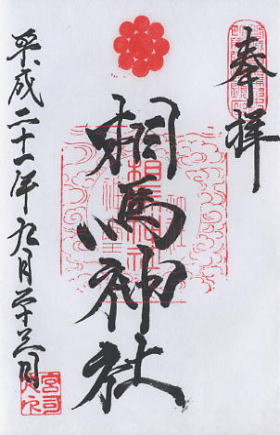 奉拝
相馬神社
平成二十一年九月二十三日